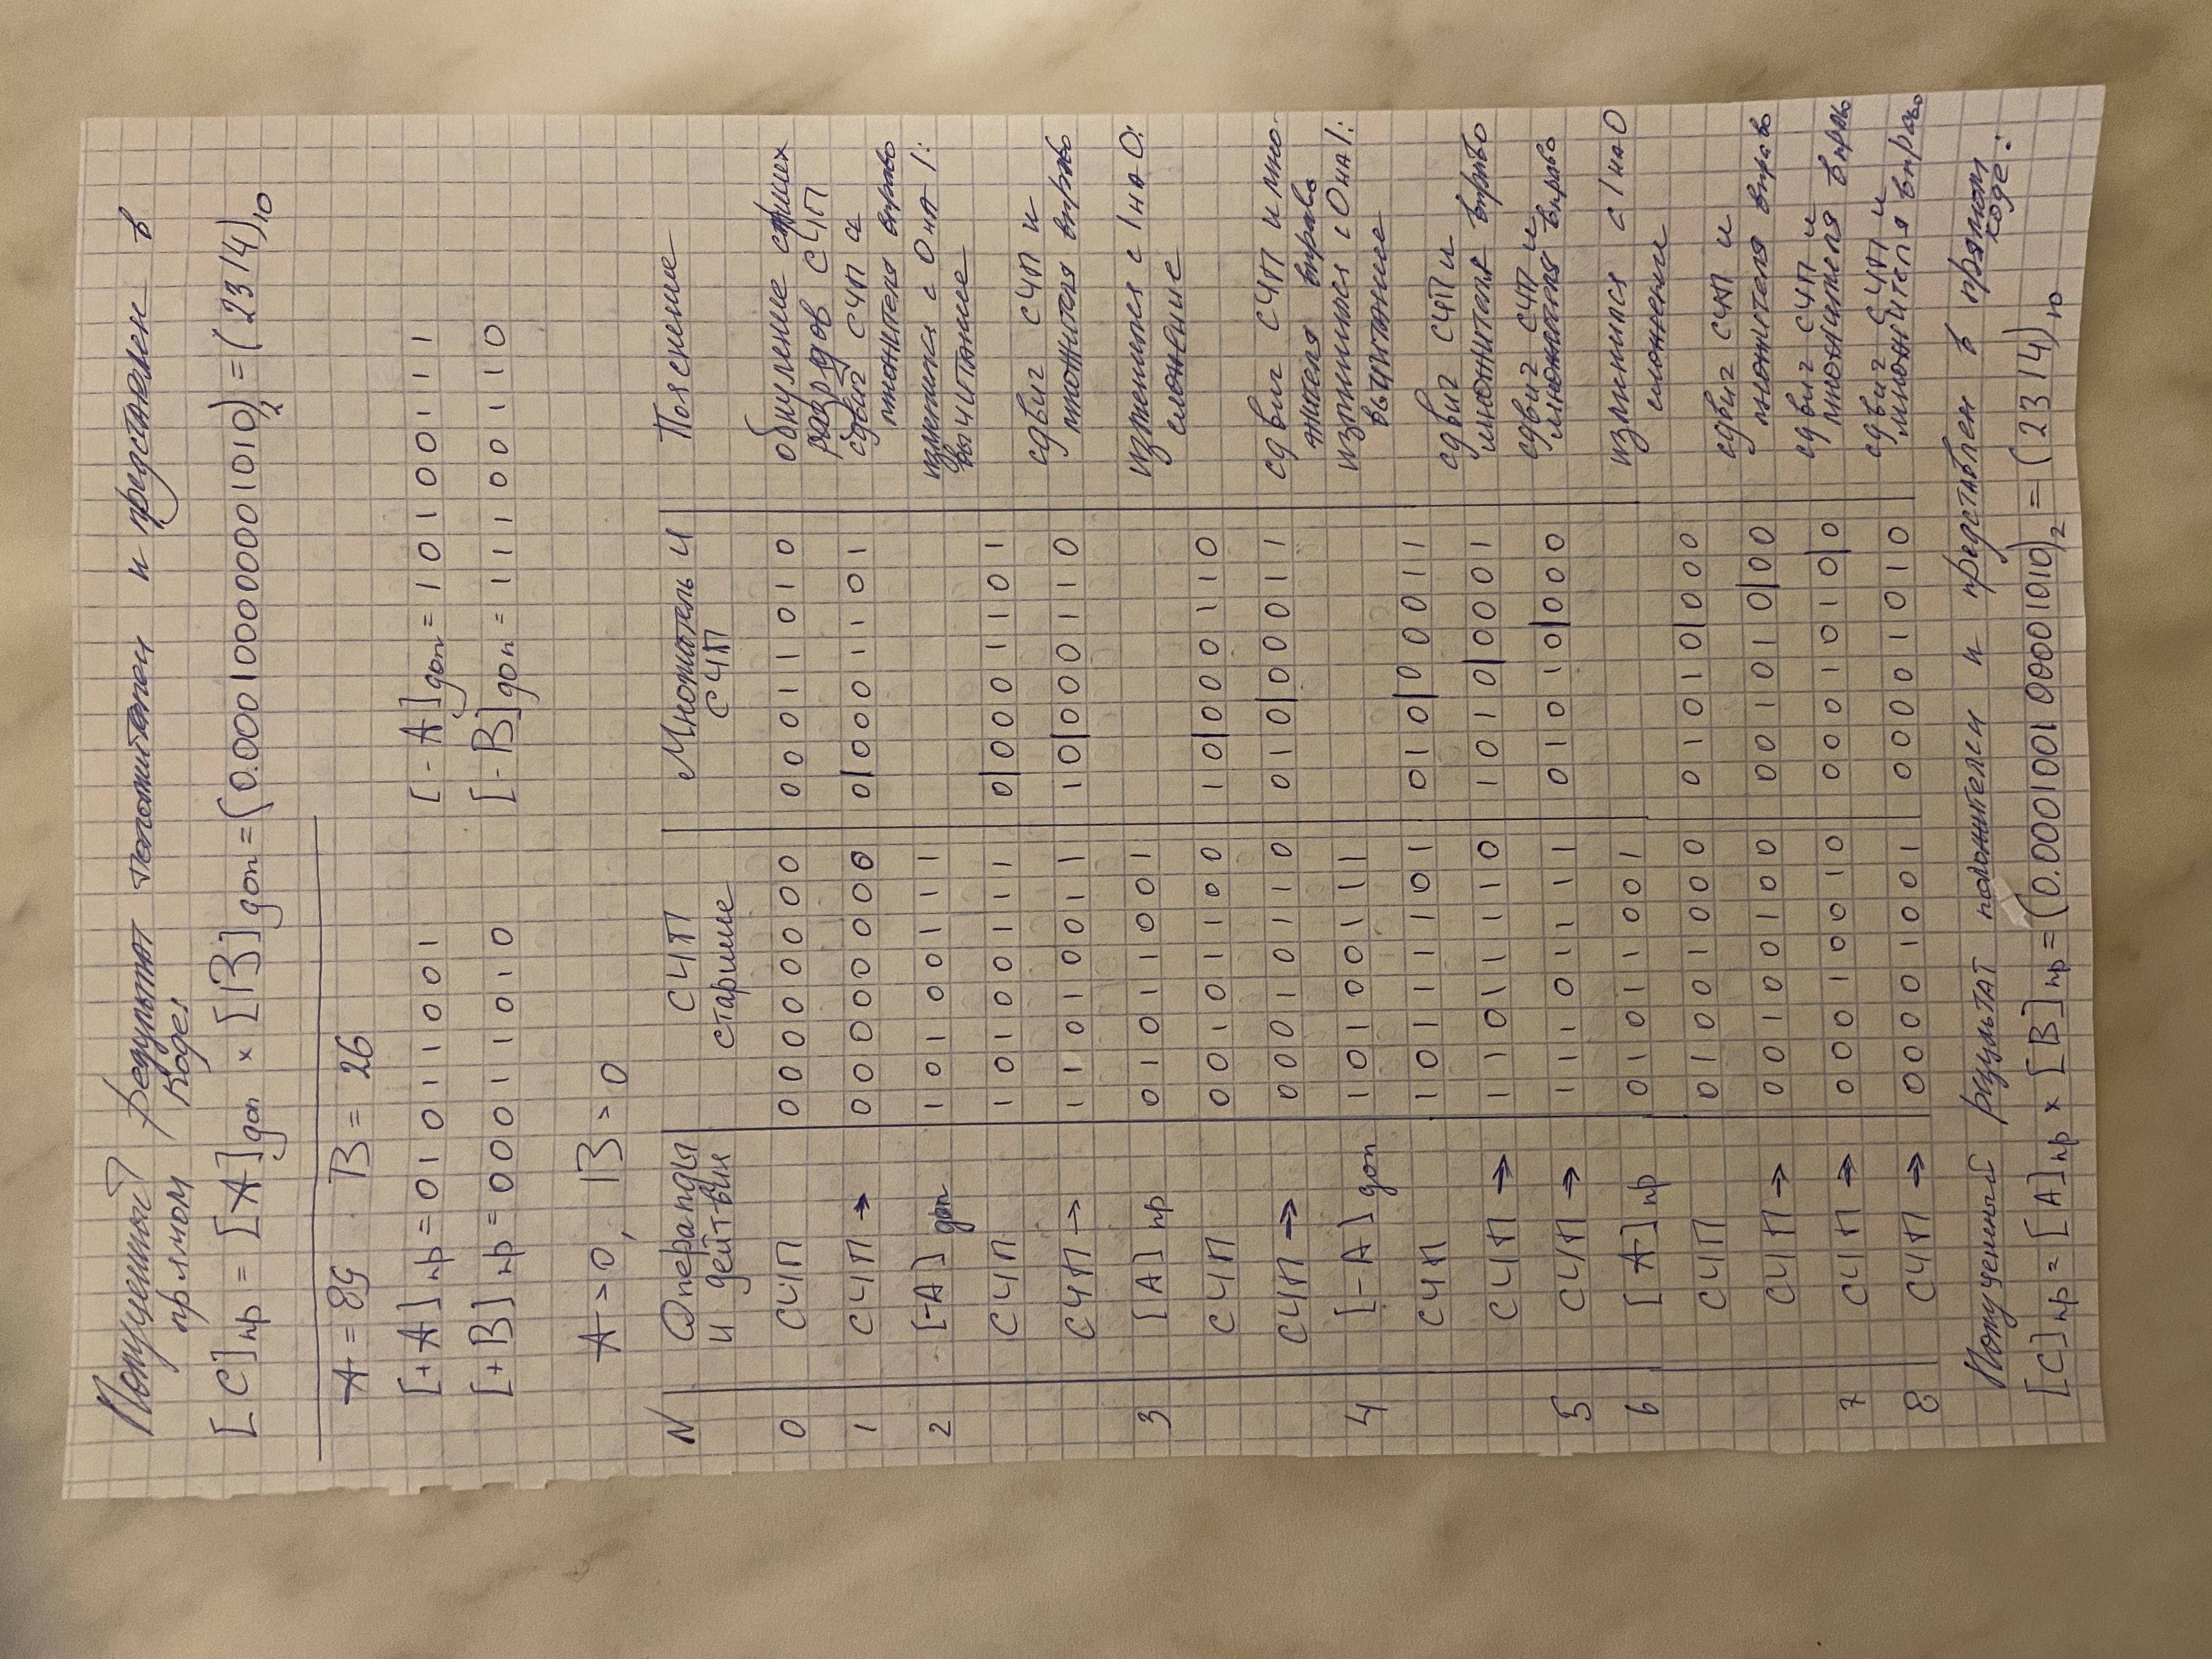 Полученный результат положителен и представлен в
прямом коде:
[C]пр = [A]доп × [B]доп = (0.000100000001010)₂ = (2314)₁₀
A = 89 B = 26
[+A]пр = 01011001 [-A]доп = 10100111
[+B]пр = 00011010 [-B]доп = 11100110
A > 0, B > 0
N Операнды СЧП Множитель и Пояснение
и действия старшие СЧП
0 СЧП 00000000 00011010 обнуление старших
разрядов СЧП
1 СЧП → 00000000 0|0001101 сдвиг СЧП и
множителя вправо
2 [-A]доп 10100111 изменился с 0 на 1:
вычитание
СЧП 10100111 0|0001101
сдвиг СЧП и
СЧП → 11010011 10|000110 множителя вправо
3 [A]пр 01011001 изменился с 1 на 0:
сложение
СЧП 00101100 10|000110
СЧП → 00010110 010|00011 сдвиг СЧП и мно-
жителя вправо
4 [-A]доп 10100111 изменился с 0 на 1:
вычитание
СЧП 10111101 010|00011
сдвиг СЧП и
СЧП → 11011110 1010|0001 множителя вправо
сдвиг СЧП и
5 СЧП → 11101111 01010|000 множителя вправо
6 [A]пр 01011001 изменился с 1 на 0
сложение
СЧП 01001000 01010|000
сдвиг СЧП и
СЧП → 00100100 001010|00 множителя вправо
сдвиг СЧП и
7 СЧП → 00010010 0001010|0 множителя вправо
сдвиг СЧП и
8 СЧП → 00001001 00001010 множителя вправо
Полученный результат положителен и представлен в прямом
коде:
[C]пр = [A]пр × [B]пр = (0.000100100001010)₂ = (2314)₁₀